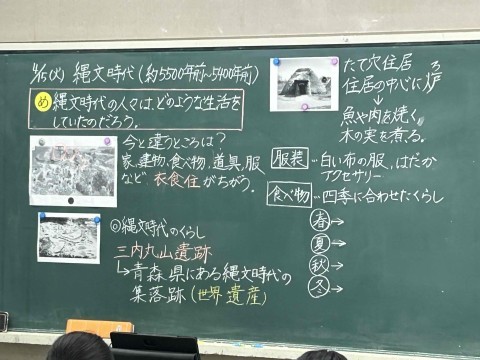 4/15(火) 縄文時代(約5500年前〜5400年前)
め 縄文時代の人々は、どのような生活を
していたのだろう。
今と違うところは?
家、建物、食べ物、道具、服
など 衣食住がちがう。
◎縄文時代のくらし
三内丸山遺跡
↳青森県にある縄文時代の
集落跡(世界遺産)
たて穴住居
住居の中心に炉
ろ
↓
魚や肉を焼く。
木の実を煮る。
服装 - 白い布の服、はだか
アクセサリー
食べ物 - 四季に合わせたくらし
春→
夏→
秋→
冬→